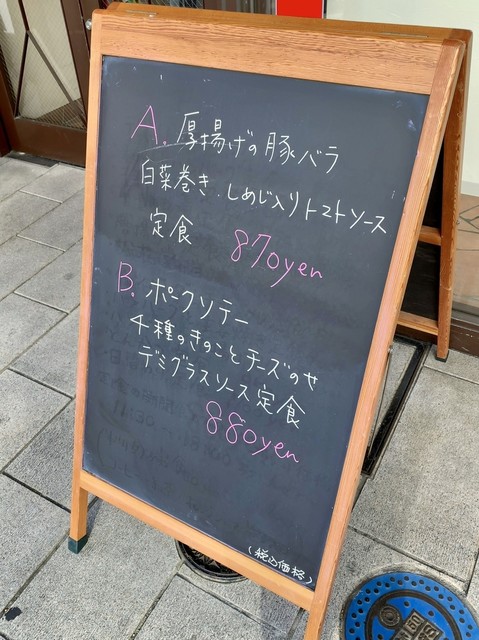 A. 厚揚げの豚バラ
白菜巻き.しめじ入りトマトソース
定食 870yen
B. ポークソテー
4種のきのことチーズのせ
デミグラスソース定食
880yen
(税込価格)